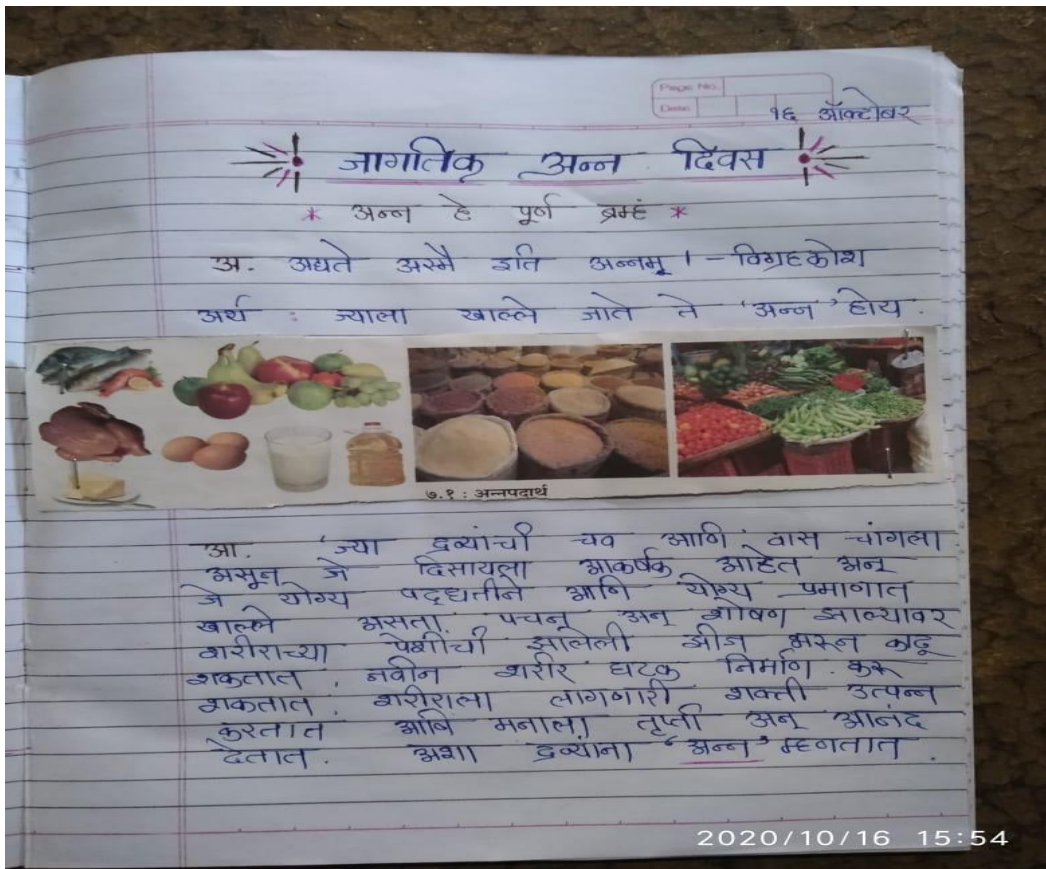 Page No.
Date
१६ ऑक्टोबर
जागतिक अन्न दिवस
* अन्न हे पूर्ण ब्रम्हं *
अ. अद्यते अस्मै इति अन्नम् । - विग्रहकोश
अर्थ : ज्याला खाल्ले जाते ते 'अन्न' होय .
७.१ : अन्नपदार्थ
आ. 'ज्या द्रव्यांची चव आणि वास चांगला
असून जे दिसायला आकर्षक आहेत अन्
जे योग्य पद्धतीने आणि योग्य प्रमाणात
खाल्ले असता पचन् अन् शोषण झाल्यावर
शरीराच्या पेशींची झालेली झीज भरून काढू
शकतात . नवीन शरीर घटक निर्माण करू
शकतात . शरीराला लागणारी शक्ती उत्पन्न
करतात आणि मनाला तृप्ती अन् आनंद
देतात . अशा द्रव्यांना 'अन्न' म्हणतात .
2020/10/16 15:54